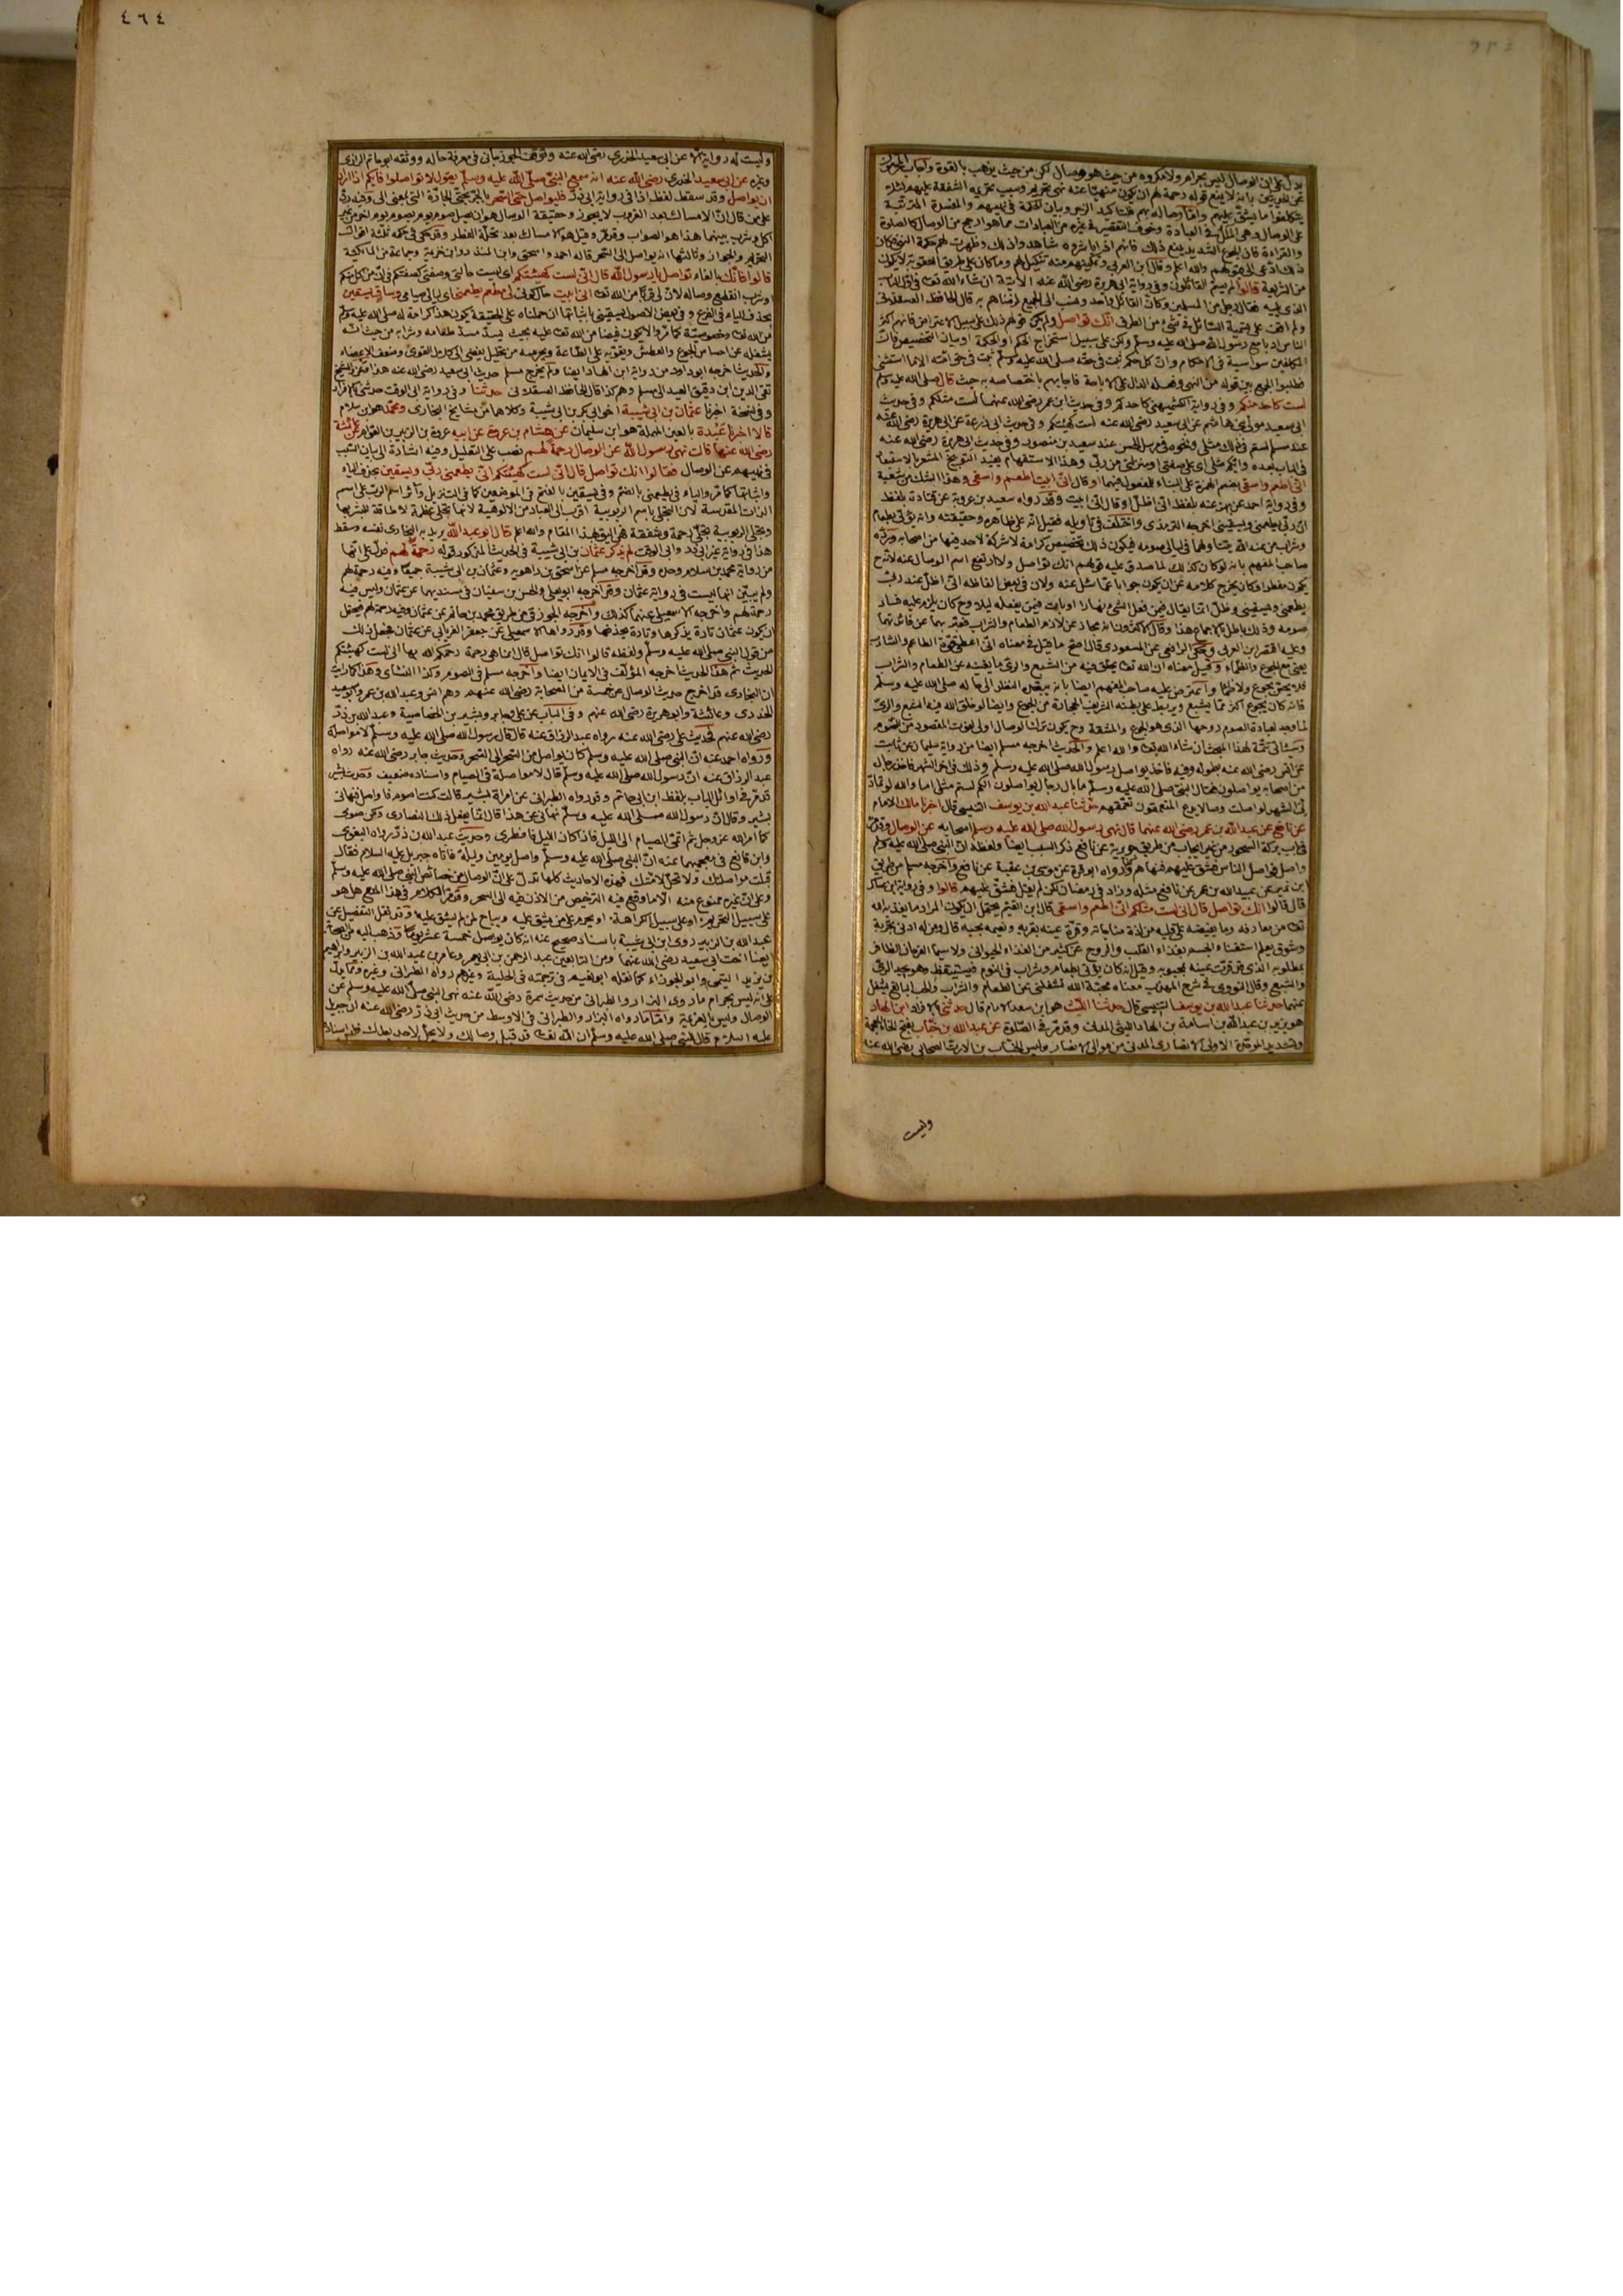 يدل على ان الوصال ليس بحرام ولا مكروه من حيث هو وصال لكن من حيث يذهب بالقوة واجاب
عن الحديثين بانه لا يمنع قوله رحمة لهم ان يكون منهيا عنه نهى تحريم وسبب تحريمه الشفقة عليهم لئلا
يتكلفوا ما يشق عليهم واما وصاله بهم فلتأكيد الزجر وبيان الحكمة في نهيهم والمفسدة المترتبة
على الوصال وهي الملل في العبادة وخوف التقصير في غيره من العبادات مما هو ارجح من الوصال كالصلوة
والقراءة فان الجوع الشديد يمنع ذلك فانهم اذا باشروه شاهدوا ذلك وظهرت لهم حكمة النهي وكان
ذلك ادعى الى والله اعلم وقال ابن العربي وتمكينهم منه تنكيل لهم وما كان على طريق العقوبة لا يكون
من الشريعة قالوا لم يسم القائلون وفي رواية ابي هريرة رضى الله عنه الآتية ان شاء الله تعالى في الباب
الذي يليه فقال رجل من المسلمين وكأن القائل واحد ونسب الى الجميع لرضاهم به قال الحافظ العسقلاني
ولم اقف على تسمية السائل في شئ من الطرق انك تواصل ولم يكن قولهم ذلك على سبيل الاعتراض فانهم اكثر
الناس ادبا مع رسول الله صلى الله عليه وسلم ولكن على سبيل استخراج الحكم او الحكمة او بيان التخصيص فان
المكلفين سواسية في الاحكام وان كل حكم ثبت في حقه صلى الله عليه وسلم ثبت في حق امته الا ما استثنى
فطلبوا الجمع بين قوله من النهي وفعله الدال على الاباحة فاجابهم باختصاصه به حيث قال صلى الله عليه وسلم
لست كاحد منكم وفي رواية الكشميهني كاحدكم وفي حديث ابن عمر رضى الله عنهما لست مثلكم وفي حديث
ابي سعيد لست كهيئتكم وفي حديث ابي زرعة عن ابي هريرة رضى الله عنه
عند مسلم لستم في ذلك مثلي ونحوه في مرسل الحسن عند سعيد بن منصور وفي حديث ابي هريرة رضى الله عنه
في الباب بعده وايكم مثلي اي على صفتي او منزلتي من ربي وهذا الاستفهام يفيد التوبيخ المشعر بالاستبعاد
اني اطعم واسقى بضم الهمزة على البناء للمفعول فيهما او قال اني ابيت اطعم واسقى وهذا الشك من شعبة
وفي رواية احمد عن بهز عنه بلفظ اني اظل او قال اني ابيت وقد رواه سعيد بن عروبة عن قتادة بلفظ
ان ربي يطعمني ويسقيني اخرجه الترمذي واختلف في تأويله فقيل انه على ظاهره وحقيقته وانه يؤتى بطعام
وشراب من عند الله يتناولهما في ليالي صومه فيكون ذلك تخصيص كرامة لا شركة لاحد فيها من اصحابه ورده
صاحب المفهم بانه لو كان كذلك لما صدق عليه قولهم انك تواصل ولا ارتفع اسم الوصال عنه لانه ح
يكون مفطرا وكان يخرج كلامه عن ان يكون جوابا عما سئل عنه ولان في بعض الفاظه اني اظل عند ربي
يطعمني ويسقيني وظل انما يقال فيمن فعل الشئ نهارا او بات فيمن يفعله ليلا وح كان يلزم عليه فساد
صومه وذلك باطل بالاجماع هذا وقال الاكثرون انه مجاز عن لازم الطعام والشراب فعبر بهما عن فائدتهما
وعليه اقتصر ابن العربي وحكى الرافعي عن المسعودي قال اصح ما قيل في معناه اني اعطى قوة الطاعم والشارب
يعني مع الجوع والظماء وقيل معناه ان الله تعالى يخلق فيه من الشبع والري ما يغنيه عن الطعام والشراب
فلا يحس بجوع ولا ظماء واعترض عليه صاحب المفهم ايضا بانه يبعده النظر الى حاله صلى الله عليه وسلم
فانه كان يجوع اكثر مما يشبع ويربط على بطنه الشريف الحجارة من الجوع وايضا لو خلق الله فيه الشبع والري
لما وجد لعبادة الصوم روحها الذي هو الجوع والمشقة وح يكون ترك الوصال اولى لفوت المقصود من الصوم
وسيأتي تتمة لهذا المبحث ان شاء الله تعالى والله اعلم والحديث اخرجه مسلم ايضا من رواية سليمان عن ثابت
عن انس رضى الله عنه بطوله وفيه فاخذ يواصل رسول الله صلى الله عليه وسلم وذلك في اخر الشهر فاخذ رجال
من اصحابه يواصلون فقال النبي صلى الله عليه وسلم ما بال رجال يواصلون انكم لستم مثلي اما والله لو تماد
لي الشهر لواصلت وصالا يدع المتعمقون تعمقهم حدثنا عبد الله بن يوسف التنيسي قال اخبرنا مالك الامام
عن نافع عن عبد الله بن عمر رضى الله عنهما قال نهى رسول الله صلى الله عليه وسلم اصحابه عن الوصال وقد مر
في باب بركة السحور من غير ايجاب من طريق جويرية عن نافع ذكر السبب ايضا ولفظه ان النبي صلى الله عليه وسلم
واصل فواصل الناس فشق عليهم فنهاهم وكذا رواه ابو قرة عن موسى بن عقبة عن نافع واخرجه مسلم من طريق
ابن نمير عن عبيد الله بن عمر عن نافع مثله وزاد في رمضان لكن لم يقل فشق عليهم قالوا وفي رواية ابن عساكر
قال قالوا انك تواصل قال اني لست مثلكم اني اطعم واسقى قال ابن القيم يحتمل ان يكون المراد ما يغذيه الله
تعالى من معارفه وما يفيضه على قلبه من لذة مناجاته وقرة عينه بقربه ونعيمه بحبه قال ومن له ادنى تجربة
وشوق يعلم استغناء الجسم بغذاء القلب والروح عن كثير من الغذاء الحيواني ولا سيما الفرحان الظافر
بمطلوبه الذي قد قرت عينه بمحبوبه وقيل انه كان يؤتى بطعام وشراب في النوم فيستيقظ وهو يجد الري
والشبع وقال النووي في شرح المهذب معناه محبة الله تشغلني عن الطعام والشراب والحب البالغ يشغل
عنهما حدثنا عبد الله بن يوسف التنيسي قال حدثنا الليث هو ابن سعد الامام قال حدثني ابن الهاد
هو يزيد بن عبد الله بن اسامة بن الهاد الليثي المدني وقد مر في الصلوة عن عبد الله بن خباب بفتح الخاء المعجمة
وتشديد الموحدة الاولى الانصاري المدني من موالي الانصار وليس الخباب بن الارت الصحابي رضى الله عنه
وليست
٤٦٤
وليست له رواية الا عن ابي سعيد الخدري رضى الله عنه وتوقف الجوزجاني في معرفة حاله ووثقه ابو حاتم الرازي
وغيره عن ابي سعيد الخدري رضى الله عنه انه سمع النبي صلى الله عليه وسلم يقول لا تواصلوا فايكم اذا اراد
ان يواصل وقد سقط لفظ اذا في رواية ابي ذر فليواصل حتى السحر بالجر بحتى الجارة التي بمعنى الى وفيه رد
على من قال ان الامساك بعد الغروب لا يجوز وحقيقة الوصال هو ان يصل صوم يوم بصوم يوم اخر من غير
اكل وشرب بينهما هذا هو الصواب وقد مر وقيل هو الامساك بعد تحلة الفطر وقد حكى في حكمه ثلثة اقوال
التحريم والجواز وثالثها انه يواصل الى السحر قاله احمد واسحق وابن المنذر وابن خزيمة وجماعة من المالكية
قالوا فانك بالفاء تواصل يا رسول الله قال اني لست كهيئتكم اي ليست حالتي وصفتي كصفتكم في ان من اكل منكم
او شرب انقطع وصاله لان لي قربا من الله تعالى اني ابيت حال كوني لي مطعم يطعمني اي ليالي صيامي وساق يسقين
بحذف الياء في الفرع وفي بعض الاصول يسقيني باثباتها ان حملناه على الحقيقة يكون هذا كرامة له صلى الله عليه وسلم
من الله تعالى وخصوصية كما مر والا يكون فيضا من الله تعالى عليه بحيث يسد مسد طعامه وشرابه من حيث انه
يشغله عن احساس الجوع والعطش ويقويه على الطاعة ويحرسه من تحليل يفضي الى كلال القوى وضعف الاعضاء
والحديث اخرجه ابو داود من رواية ابن الهاد ايضا ولم يخرج مسلم حديث ابي سعيد رضى الله عنه هذا وعزاه الشيخ
تقي الدين ابن دقيق العيد الى مسلم وهم كذا قال الحافظ العسقلاني حدثنا وفي رواية ابي الوقت حدثني بالافراد
وفي نسخة اخبرنا عثمان بن ابي شيبة اخو ابي بكر بن ابي شيبة وكلاهما من مشايخ البخاري ومحمد هو ابن سلام
قالا اخبرنا عبدة بالعين المهملة هو ابن سليمان عن هشام بن عروة عن ابيه عروة بن الزبير بن العوام عن عائشة
رضى الله عنها قالت نهى رسول الله عن الوصال رحمة لهم نصب على التعليل وفيه اشارة الى بيان السبب
في نهيهم عن الوصال فقالوا انك تواصل قال اني لست كهيئتكم اني يطعمني ربي ويسقين بحذف الياء
واثباتها كما مر والياء في يطعمني بالضم وفي يسقين بالفتح في الموضعين كما في التنزيل وآثر اسم الرب على اسم
الذات المقدسة لان التجلي باسم الربوبية اقرب الى العباد من الالوهية لانها تجلي عظمة لا طاقة للبشر بها
وتجلي الربوبية تجلي رحمة وشفقة فهي اليق بهذا المقام والله اعلم قال ابو عبد الله يريد به البخاري نفسه وسقط
هذا في رواية غير ابي ذر وابي الوقت لم يذكر عثمان بن ابي شيبة في الحديث المذكور قوله رحمة لهم فدل على انها
من رواية محمد بن سلام وحده وقد اخرجه مسلم عن اسحق بن راهويه وعثمان بن ابي شيبة جميعا وفيه رحمة لهم
ولم يبين انها ليست في رواية عثمان وقد اخرجه ابو يعلى والحسن بن سفيان في مسنديهما عن عثمان وليس فيه
رحمة لهم واخرجه الاسمعيلي عنهما كذلك واخرجه الجوزقي من طريق محمد بن حاتم عن عثمان وفيه رحمة لهم فيحتمل
ان يكون عثمان تارة يذكرها وتارة يحذفها وقد رواها الاسمعيلي عن جعفر الفريابي عن عثمان فجعل ذلك
من قول النبي صلى الله عليه وسلم ولفظه قالوا انك تواصل قال انما هي رحمة رحمكم الله بها اني لست كهيئتكم
الحديث ثم هذا الحديث اخرجه المؤلف في الايمان ايضا واخرجه مسلم في الصوم وكذا النسائي وهذا كما رأيت
ان البخاري قد اخرج حديث الوصال عن خمسة من الصحابة رضى الله عنهم وهم انس وعبد الله بن عمر وابو سعيد
الخدري وعائشة وابو هريرة رضى الله عنهم وفي الباب عن علي وجابر وبشير بن الخصاصية وعبد الله بن ذر
رضى الله عنهم فحديث علي رضى الله عنه رواه عبد الرزاق عنه قال قال رسول الله صلى الله عليه وسلم لا مواصلة
ورواه احمد عنه ان النبي صلى الله عليه وسلم كان يواصل من السحر الى السحر وحديث جابر رضى الله عنه رواه
عبد الرزاق عنه ان رسول الله صلى الله عليه وسلم قال لا مواصلة في الصيام واسناده ضعيف وحديث بشير
قد مر في اوائل الباب بلفظ ابن ابي حاتم وقد رواه الطبراني عن امرأة بشير قالت كنت اصوم فاواصل فنهاني
بشير وقال ان رسول الله صلى الله عليه وسلم نهاني عن هذا قال انما يفعل ذلك النصارى ولكن صومي
كما امر الله عز وجل ثم اتمي الصيام الى الليل فاذا كان الليل فافطري وحديث عبد الله بن ذر رواه البغوي
وابن قانع في معجميهما عنه ان النبي صلى الله عليه وسلم واصل بين يومين وليلة فاتاه جبريل عليه السلام فقال
قبلت مواصلتك ولا تحل لامتك فهذه الاحاديث كلها تدل على ان الوصال من خصائص النبي صلى الله عليه وسلم
وعلى ان غيره ممنوع منه الا ما وقع فيه الترخيص من الاذن فيه الى السحر وقد مر الكلام في هذا المنع هل هو
على سبيل التحريم او على سبيل الكراهة او يحرم على من يشق عليه ويباح لمن لم يشق عليه وقد نقل التفصيل عن
عبد الله بن الزبير روى ابن ابي شيبة باسناد صحيح عنه انه كان يواصل خمسة عشر يوما وذهب اليه من الصحابة
ايضا اخت ابي سعيد رضى الله عنهما ومن التابعين عبد الرحمن بن ابي نعم وعامر بن عبد الله بن الزبير وابراهيم
بن يزيد التيمي وابو الجوزاء كما نقله ابو نعيم في ترجمته في الحلية وغيرهم رواه الطبراني وغيره ومما يدل
على انه ليس بحرام ما روى البزار والطبراني من حديث سمرة رضى الله عنه نهى النبي صلى الله عليه وسلم عن
الوصال وليس بالعزيمة واما ما رواه البزار والطبراني في الاوسط من حديث ابي ذر رضى الله عنه ان جبريل
عليه السلام قال للنبي صلى الله عليه وسلم ان الله تعالى قد قبل وصالك ولا يحل لاحد بعدك فليس اسناده